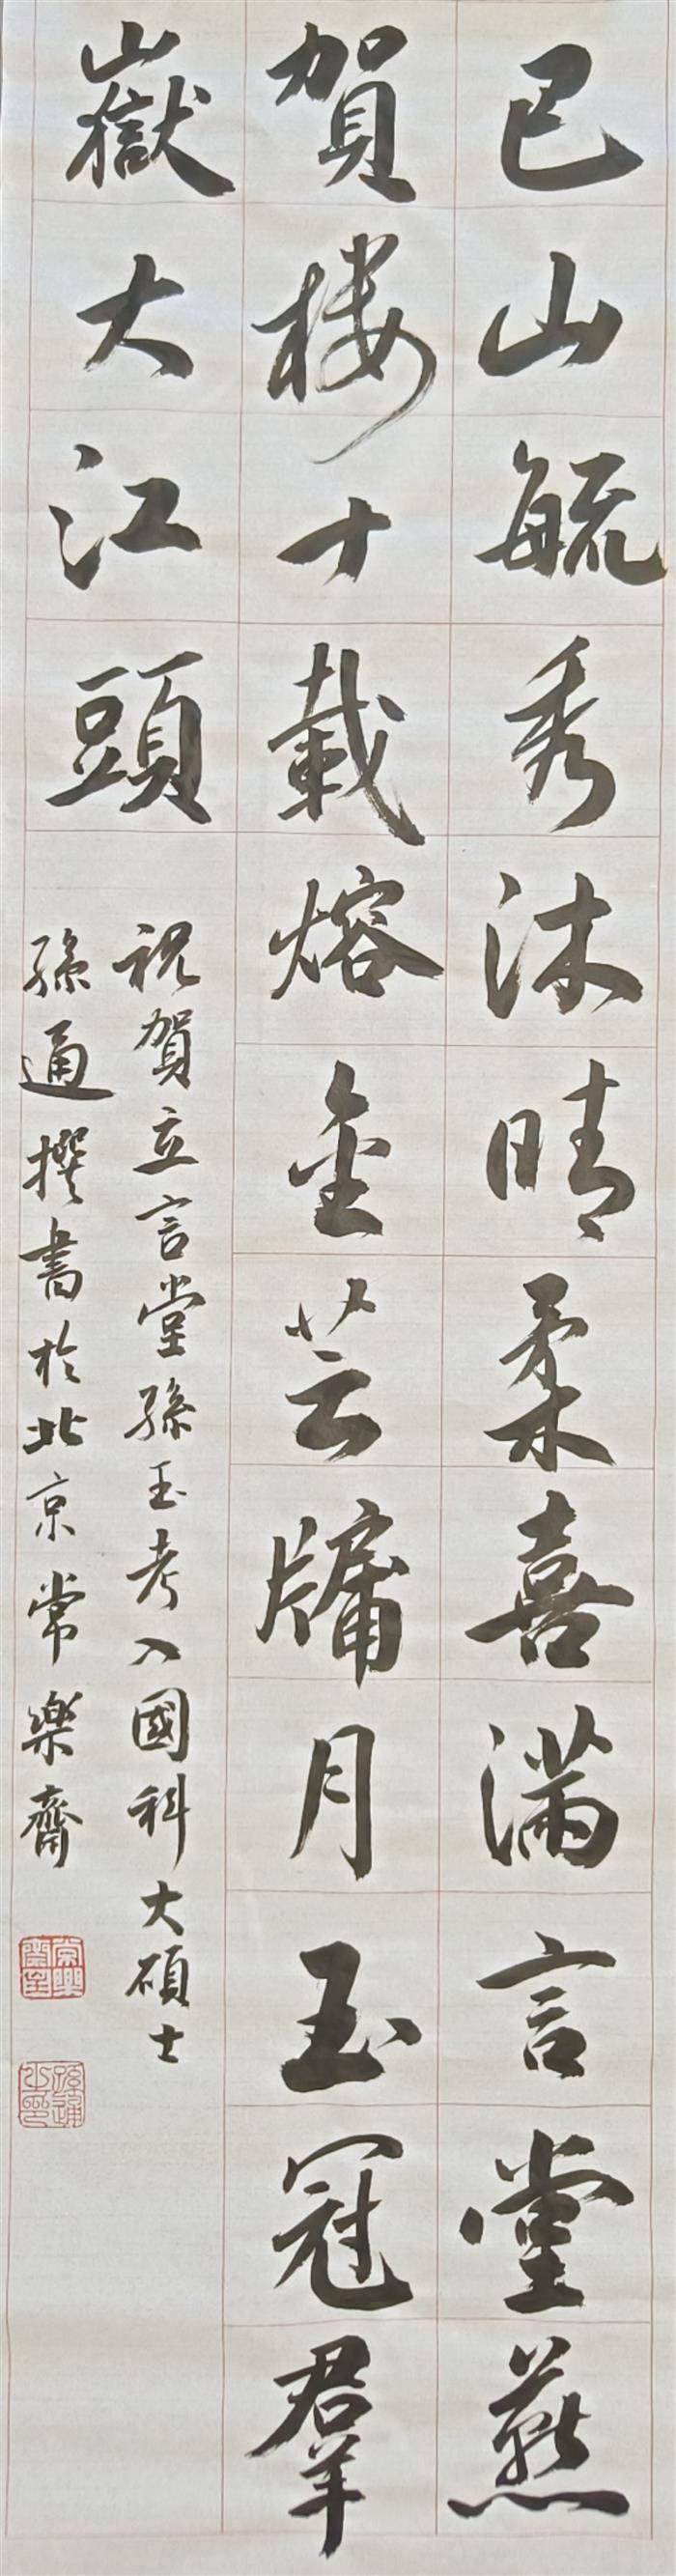 巴山毓秀沐晴柔喜滿言堂燕
賀樓十載熔金芸牗月玉冠羣
山嶽大江頭
祝賀立言堂孫玉考入國科大碩士
孫通撰書於北京常樂齋
常樂齋主
孫通之印